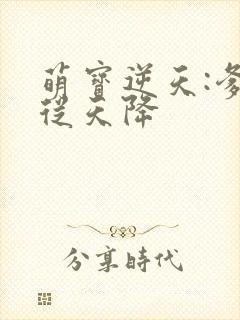 萌寶逆天:
從天降
分享時代